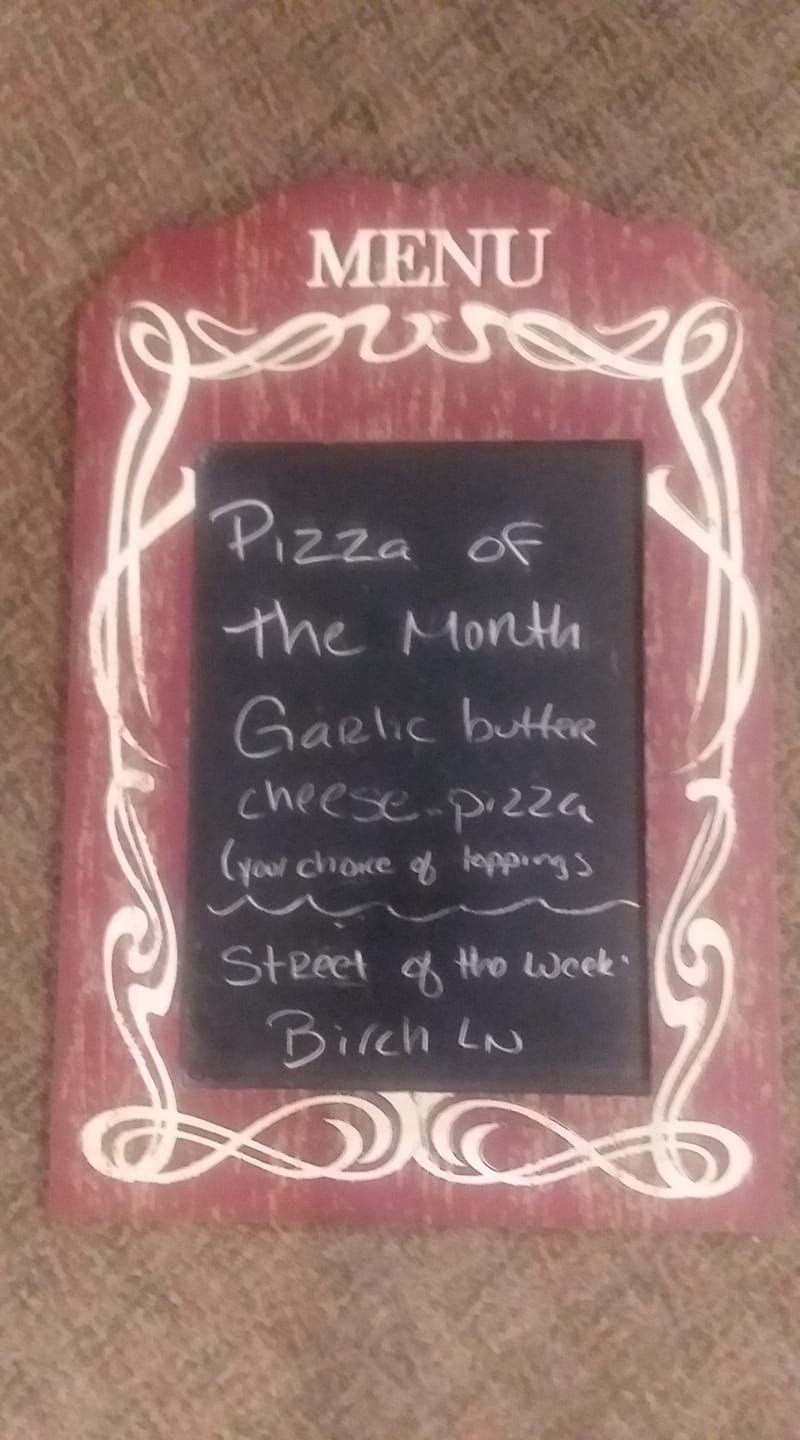 MENU
Pizza of
the Month
Garlic butter
cheese-pizza
(your choice of toppings
Street of the week.
Birch LN